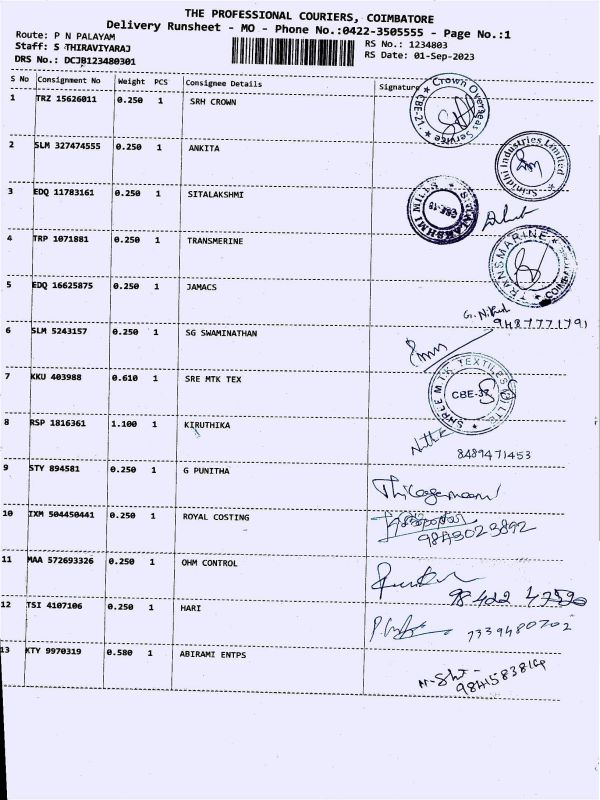 THE PROFESSIONAL COURIERS, COIMBATORE
Delivery Runsheet - MO - Phone No.:0422-3505555 - Page No.:1
Route: P N PALAYAM
RS No.: 1234803
Staff: S THIRAVIYARAJ
RS Date: 01-Sep-2023
DRS No.: DCJB123480301
S No Consignment No Weight PCS Consignee Details Signature
1 TRZ 15626011 0.250 1 SRH CROWN
Crown Overseas Service
2 SLM 327474555 0.250 1 ANKITA
Srinidhi Industries Limited
3 EDQ 11783161 0.250 1 SITALAKSHMI
SITALAKSHMI MILLS CBE-18
4 TRP 1071881 0.250 1 TRANSMERINE
TRANSMARINE
5 EDQ 16625875 0.250 1 JAMACS
9487771791
6 SLM 5243157 0.250 1 SG SWAMINATHAN
7 KKU 403988 0.610 1 SRE MTK TEX
SHREE MTK TEXTILES
CBE-37
8 RSP 1816361 1.100 1 KIRUTHIKA
8489471453
9 STY 894581 0.250 1 G PUNITHA
10 IXM 504450441 0.250 1 ROYAL COSTING
11 MAA 572693326 0.250 1 OHM CONTROL
98422 47590
12 TSI 4107106 0.250 1 HARI
7339480702
13 KTY 9970319 0.580 1 ABIRAMI ENTPS